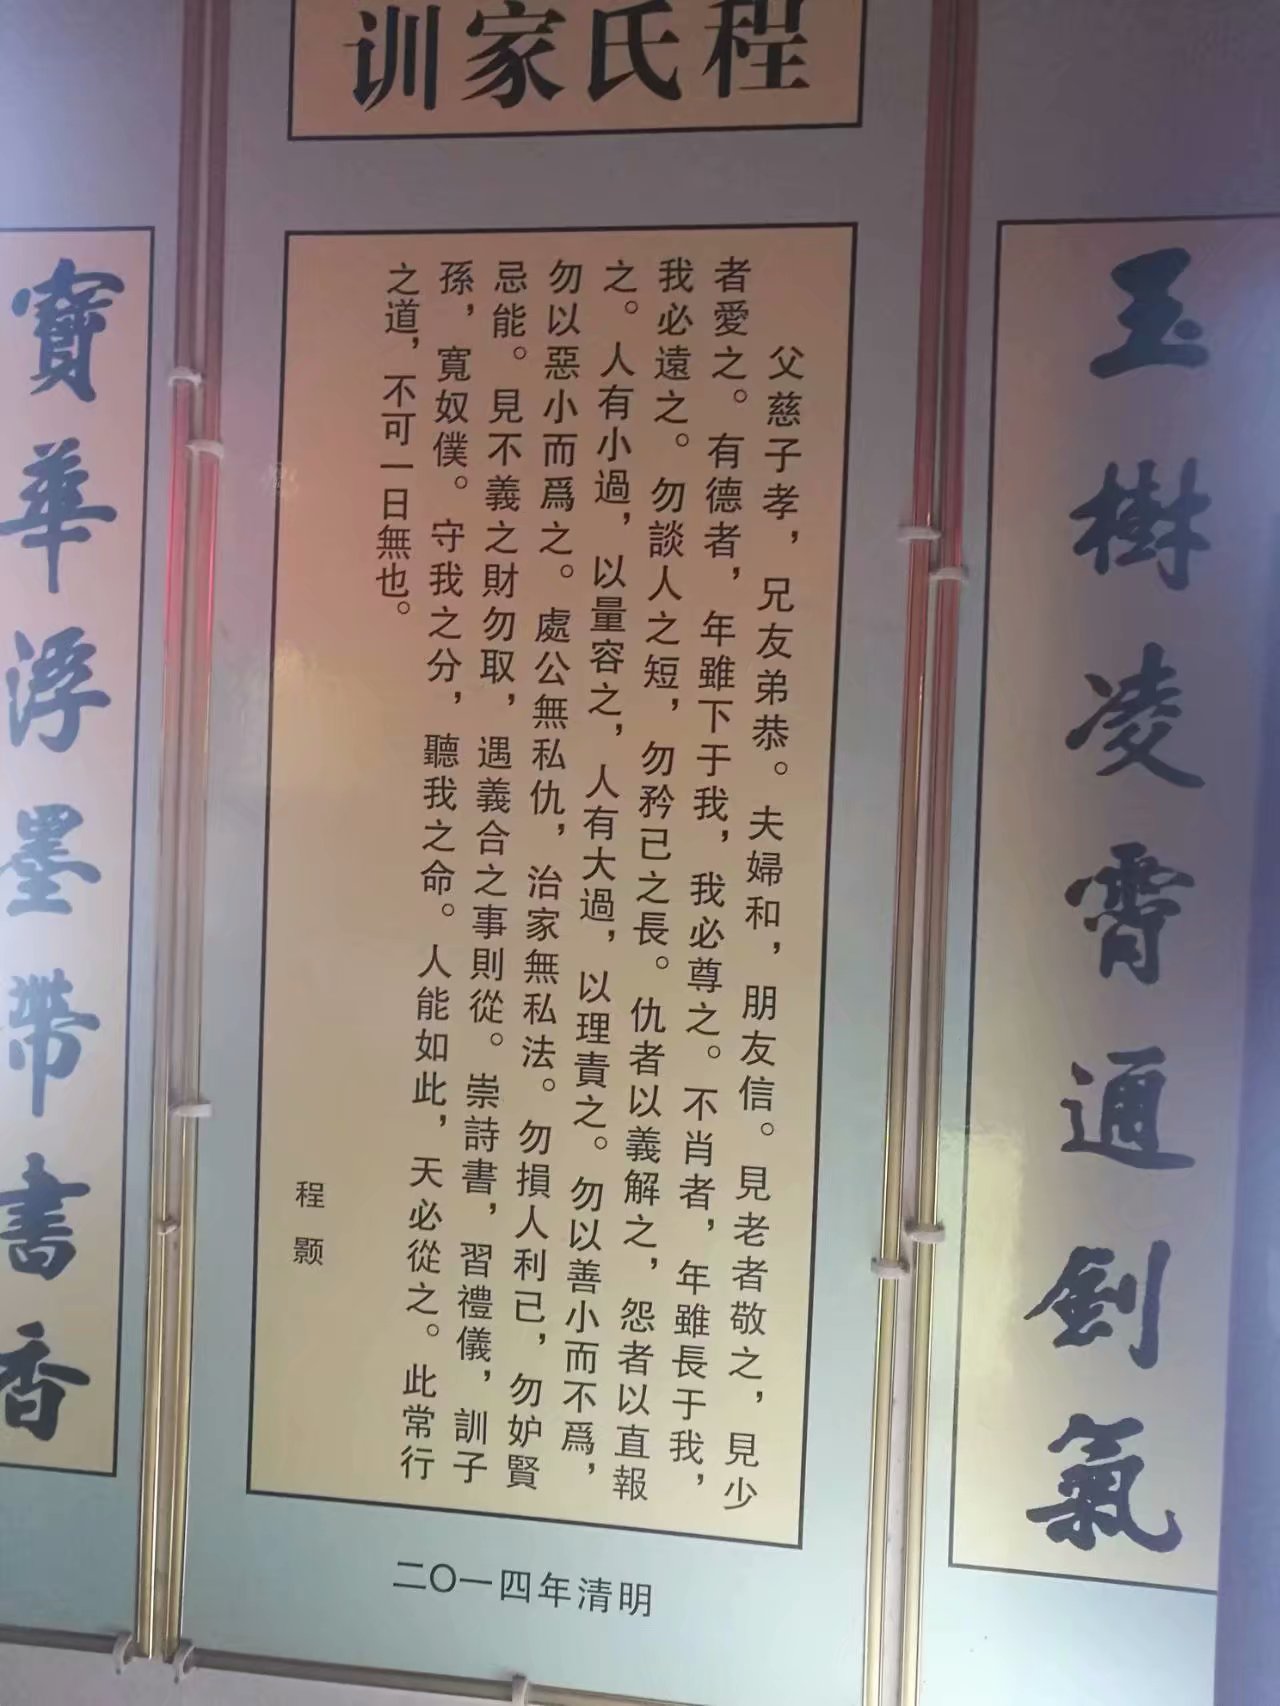 程氏家训
玉樹凌霄通劍氣
父慈子孝，兄友弟恭。夫婦和，朋友信。見老者敬之，見少
者愛之。有德者，年雖下于我，我必尊之。不肖者，年雖長于我，
我必遠之。勿談人之短，勿矜已之長。仇者以義解之，怨者以直報
之。人有小過，以量容之，人有大過，以理責之。勿以善小而不爲，
勿以惡小而爲之。處公無私仇，治家無私法。勿損人利已，勿妒賢
忌能。見不義之財勿取，遇義合之事則從。崇詩書，習禮儀，訓子
孫，寬奴僕。守我之分，聽我之命。人能如此，天必從之。此常行
之道，不可一日無也。
程颢
寶華浮墨帶書香
二〇一四年清明